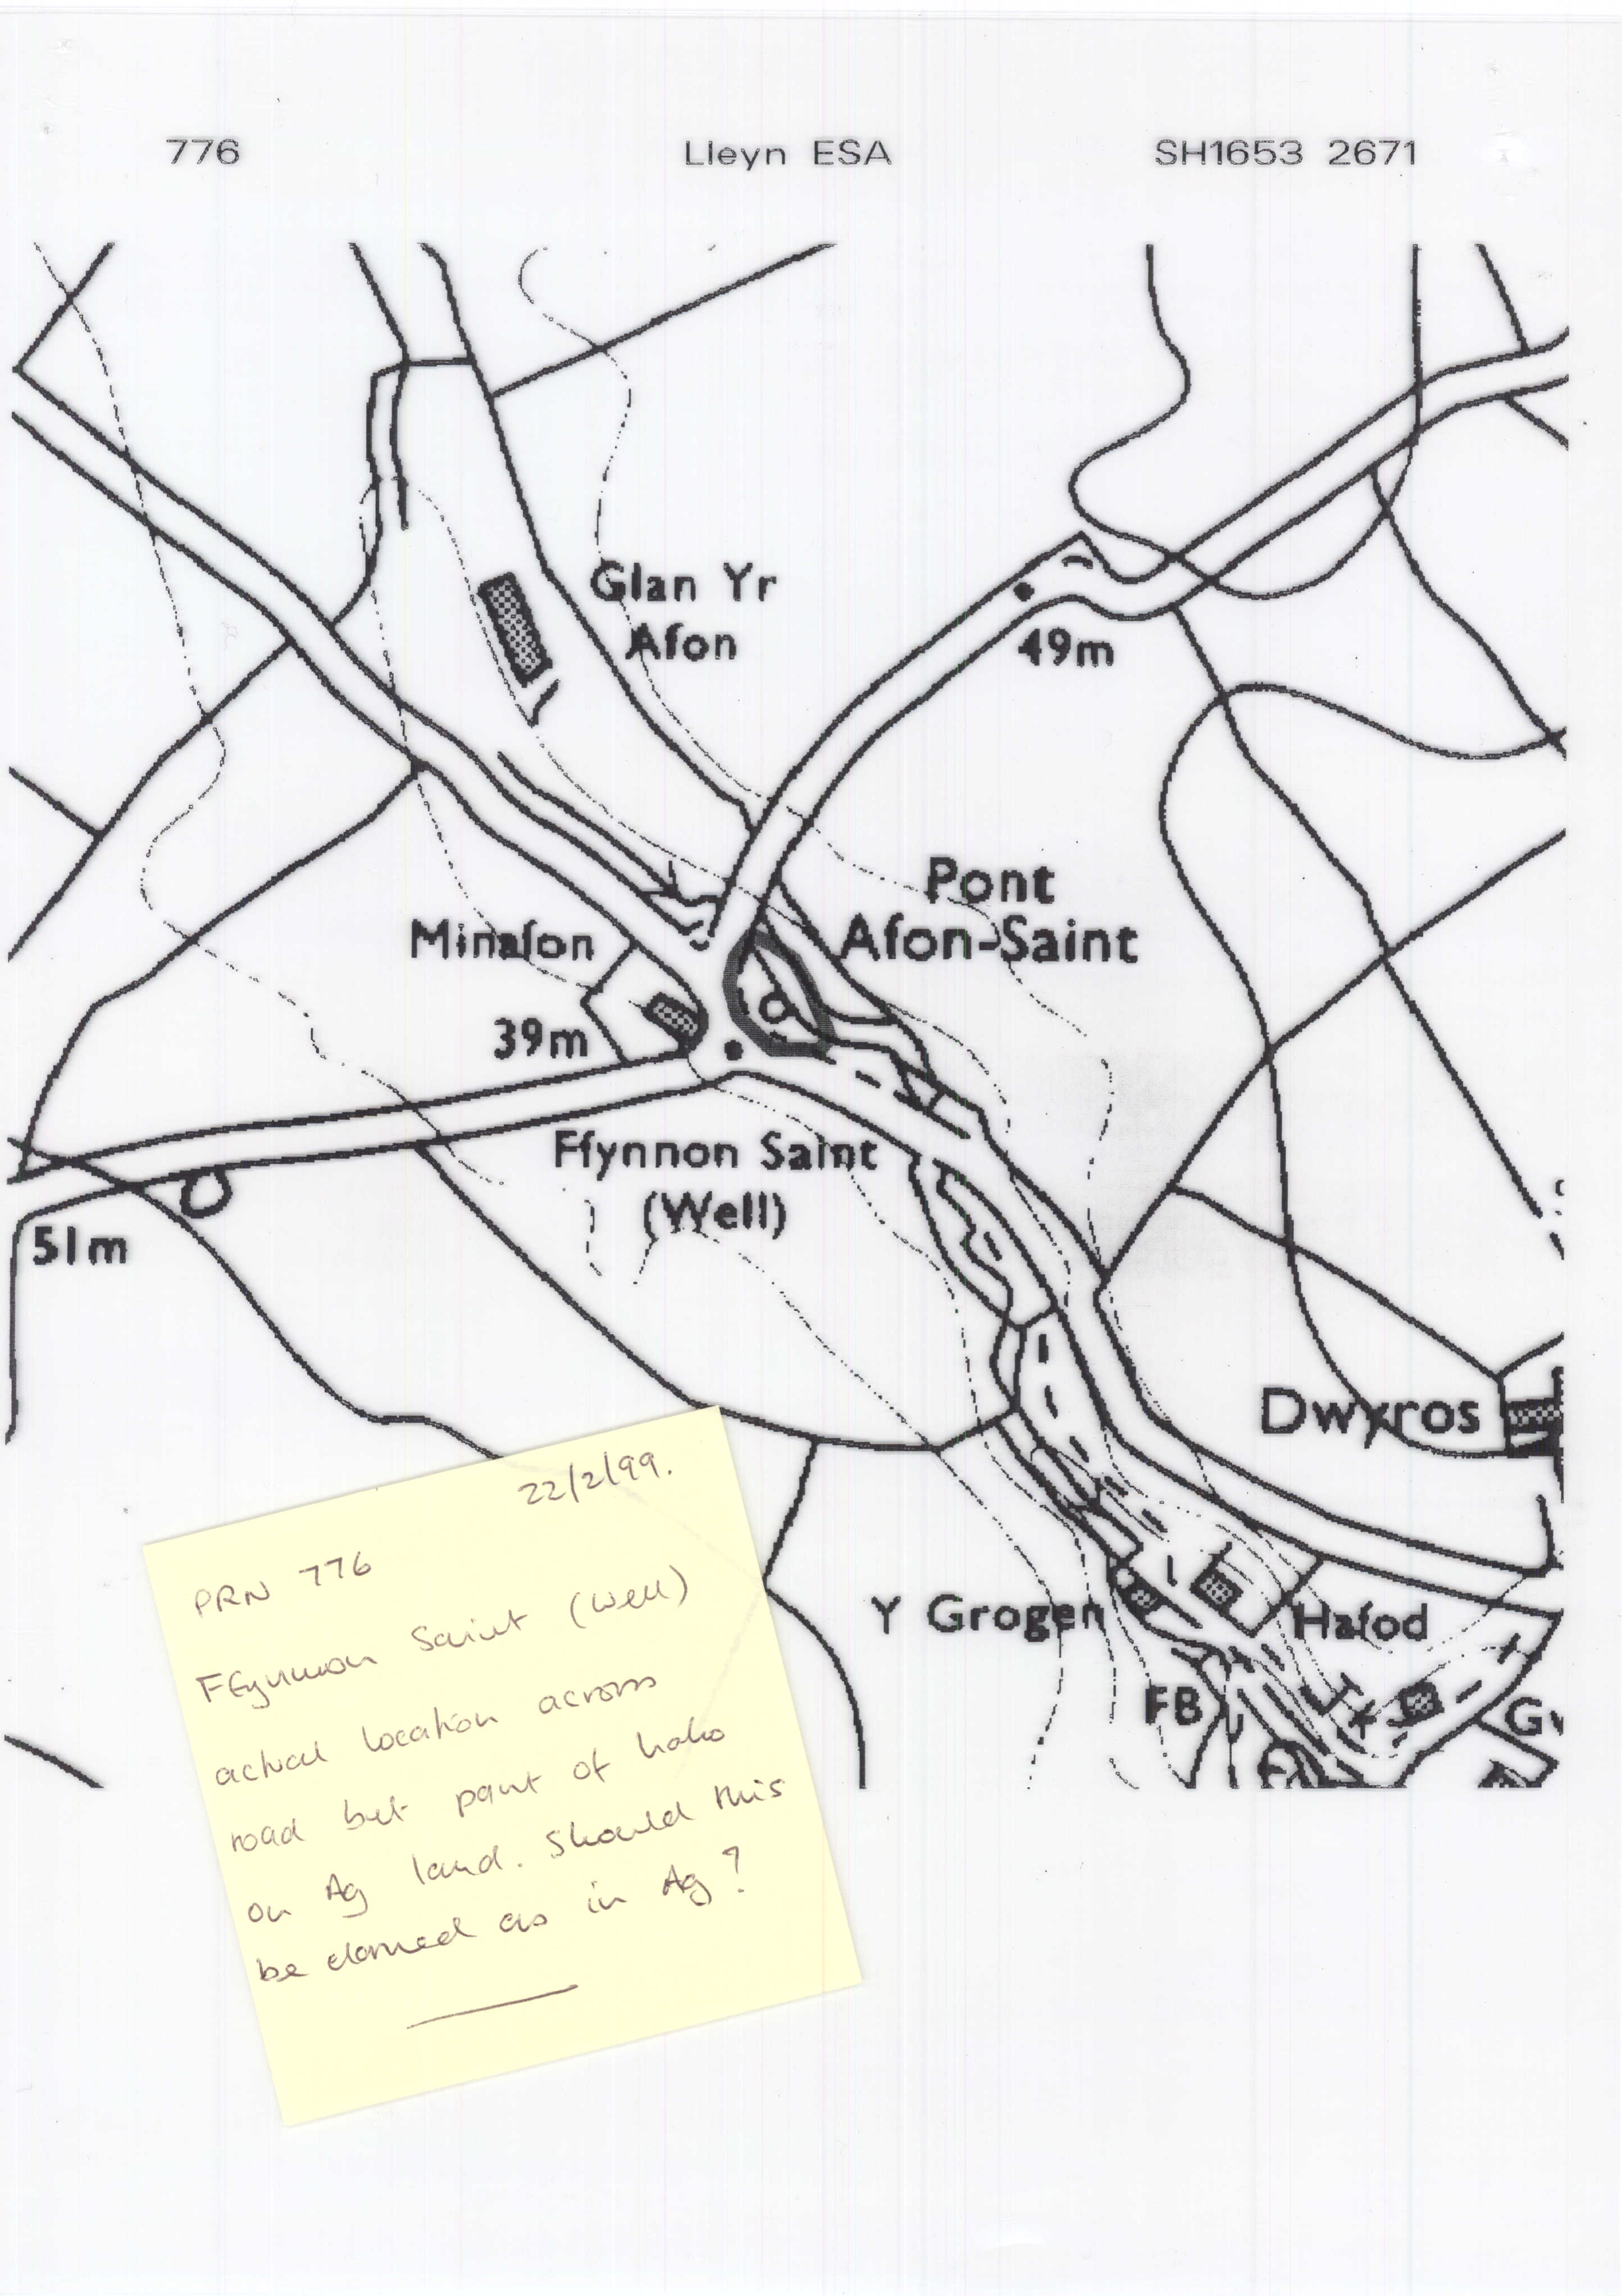 776 Lleyn ESA SH1653 2671
Glan Yr
Afon
49m
Pont
Afon-Saint
Minafon
39m
Ffynnon Saint
(Well)
51m
Dwyros
Y Grogen
Hafod
FB
22/2/99.
PRN 776
Ffynnon Saint (Well)
actual location across
road but part of halo
on Ag land. Should this
be classed as in Ag?